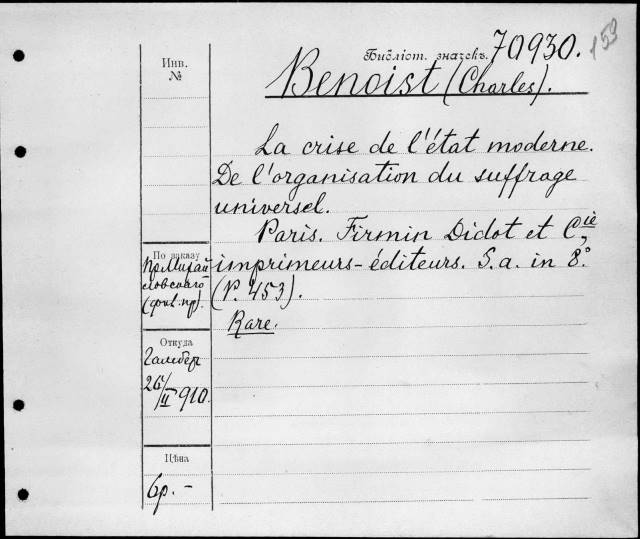 153
Библіот. значекъ. 70930.
Benoist (Charles).
Инв.
№
La crise de l'état moderne.
De l'organisation du suffrage
universel.
Paris. Firmin Didot et Cie,
imprimeurs-éditeurs. S.a. in 8°.
(P. 453).
Rare.
По заказу
пр. Михай
ловскаго
Откуда
26/II 910.
Цѣна
6р. -